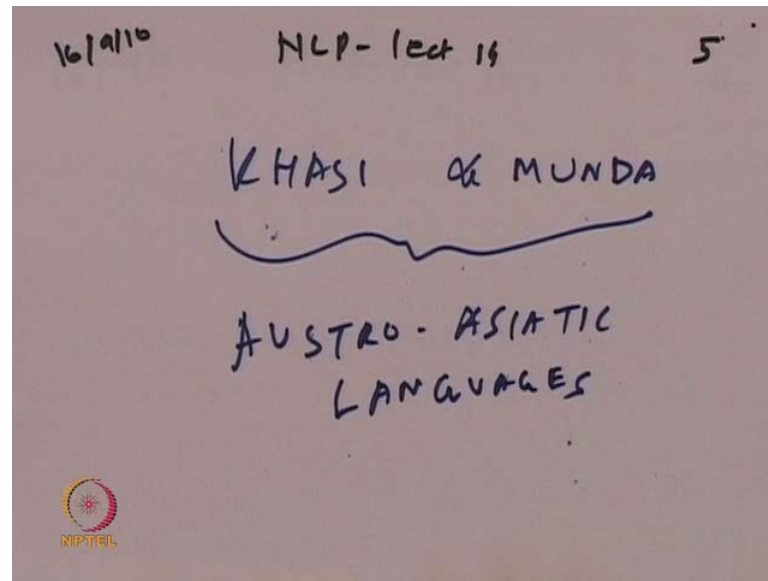 16/9/10 NLP - lect 19 5
KHASI & MUNDA
AUSTRO-ASIATIC
LANGUAGES
NPTEL